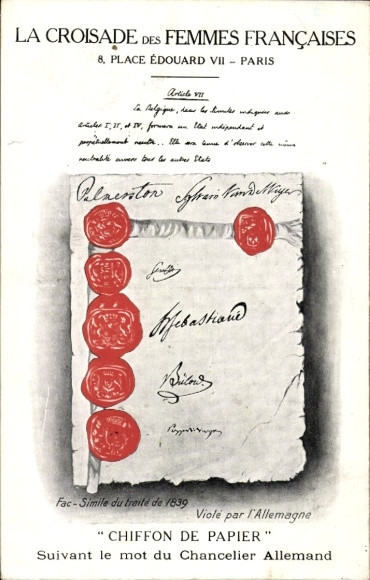 LA CROISADE DES FEMMES FRANÇAISES
8, PLACE ÉDOUARD VII – PARIS
Article VII
La Belgique, dans les limites indiquées aux
articles I, II, et IV, formera un Etat indépendant et
perpétuellement neutre.. Elle sera tenue d'observer cette même
neutralité envers tous les autres Etats
Palmerston Sylvain Van de Weyer
Senfft
H Sebastiani
Bülow
Pozzo di Borgo
Fac-Simile du traité de 1839
Violé par l'Allemagne
" CHIFFON DE PAPIER "
Suivant le mot du Chancelier Allemand